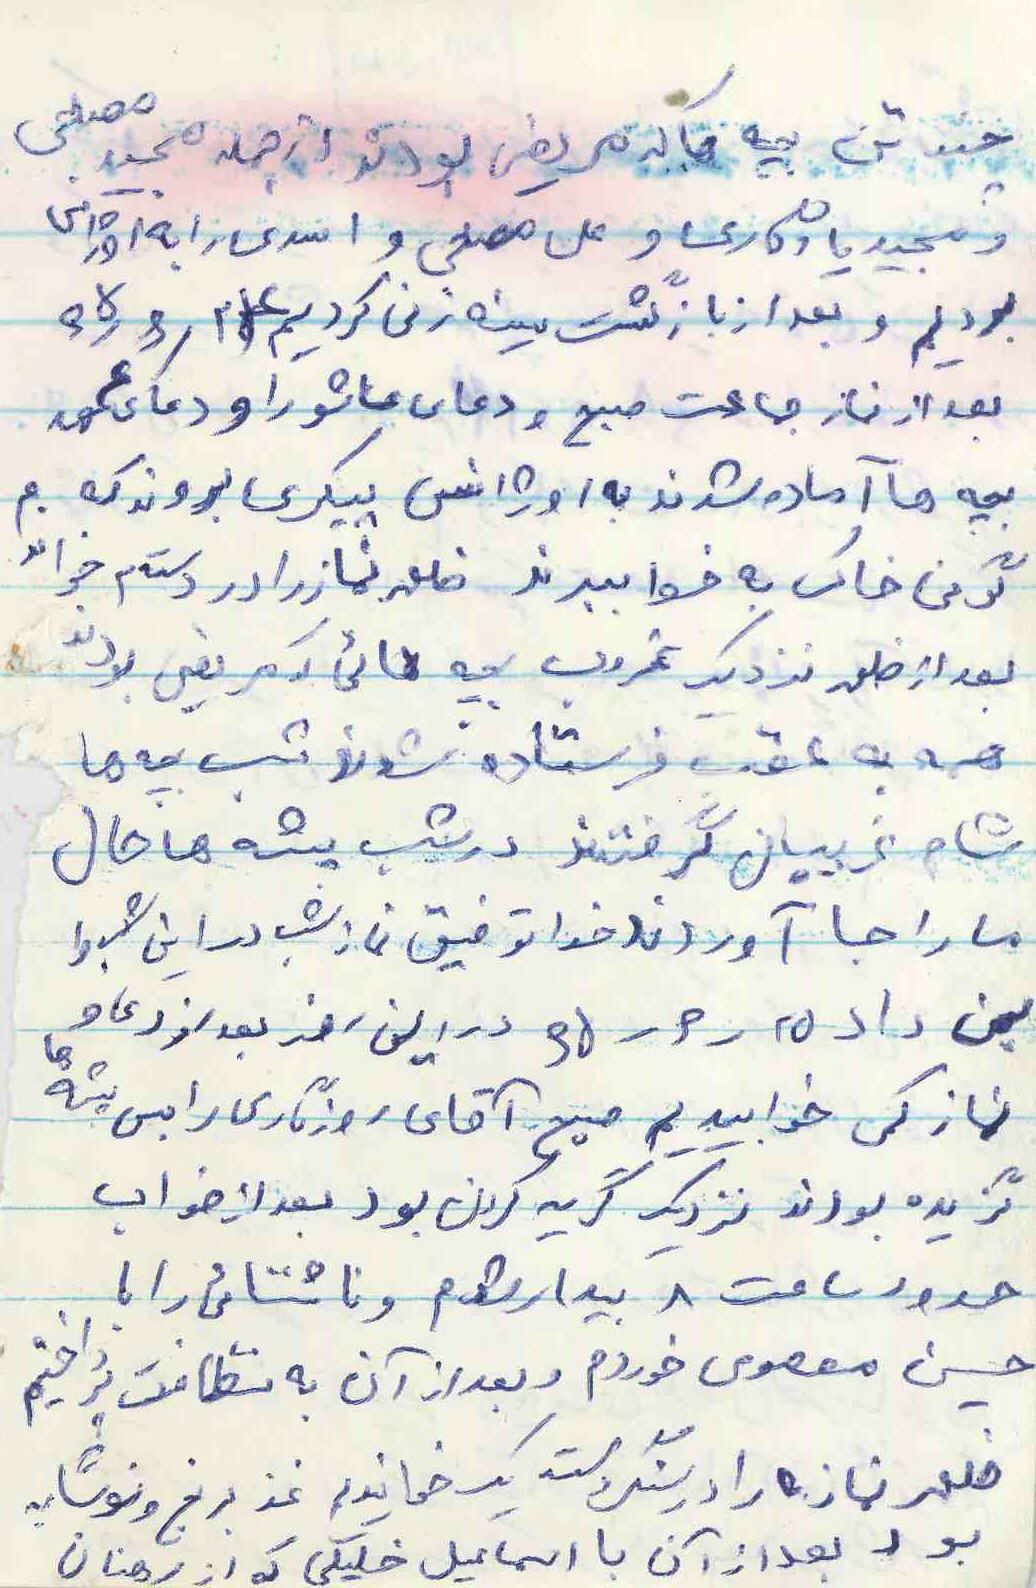 چند تن بچه ها که مریض بودند از جمله مجید مصلحی
و مجید یادگاری و علی مصلحی و اسدی را به اورژانس
بردیم و بعد از بازگشت سینه زنی کردیم ۶۵/۶/۲۴
بعد از نماز جماعت صبح و دعای عاشورا و دعای عهد
بچه ها آماده شدند به اورژانس پیگری بروند که
گونی خاک به خدا ببرند ظهر نماز را در دسته خواند
بعد از ظهر نزدیک غروب بچه هائی که مریض بودند
همه به عقب فرستاده شدند شب بچه ها
شام غریبان گرفتند در شب پشه ها حال
ما را جا آوردند خدا توفیق نماز شب در این شب را
بمن داد ۶۵/۶/۲۵ در این روز بعد از دعا و
نماز کمی خوابیدیم صبح آقای روزگاری را بس پشه ها
گزیده بودند نزدیک گریه کردن بود بعد از خواب
حدود ساعت ۸ بیدار شدم و ناشتائی را با
حسین معصومی خوردم و بعد از آن به نظافت پرداختیم
ظهر نماز را در سنگر دسته یک خواندیم غذا برنج و نوشابه
بود بعد از آن با اسماعیل خلیلی که از رهنان